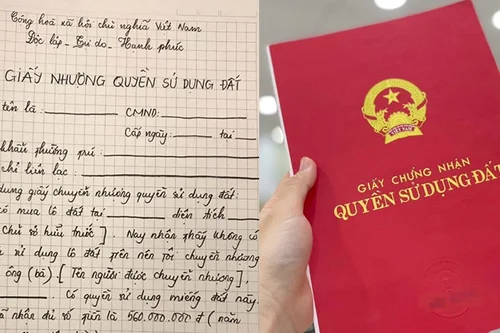 Cộng hoà xã hội chủ nghĩa Việt Nam
Độc lập - Tự do - Hạnh phúc
GIẤY NHƯỢNG QUYỀN SỬ DỤNG ĐẤT
tên là: CMND:
Cấp ngày: tại
khẩu thường trú:
chỉ liên lạc:
dung giấy chuyển nhượng quyền sử dụng đất:
có mua lô đất tại diện tích
Chủ sở hữu trước]. Nay nhận thấy không có
sử dụng lô đất trên nên tôi chuyển nhượng
ông (bà) [Tên người được chuyển nhượng],
. Có quyền sử dụng miếng đất này.
nhận đủ số tiền là 560.000.000 đ (năm
VIỆT NAM
GIẤY CHỨNG NHẬN
QUYỀN SỬ DỤNG ĐẤT